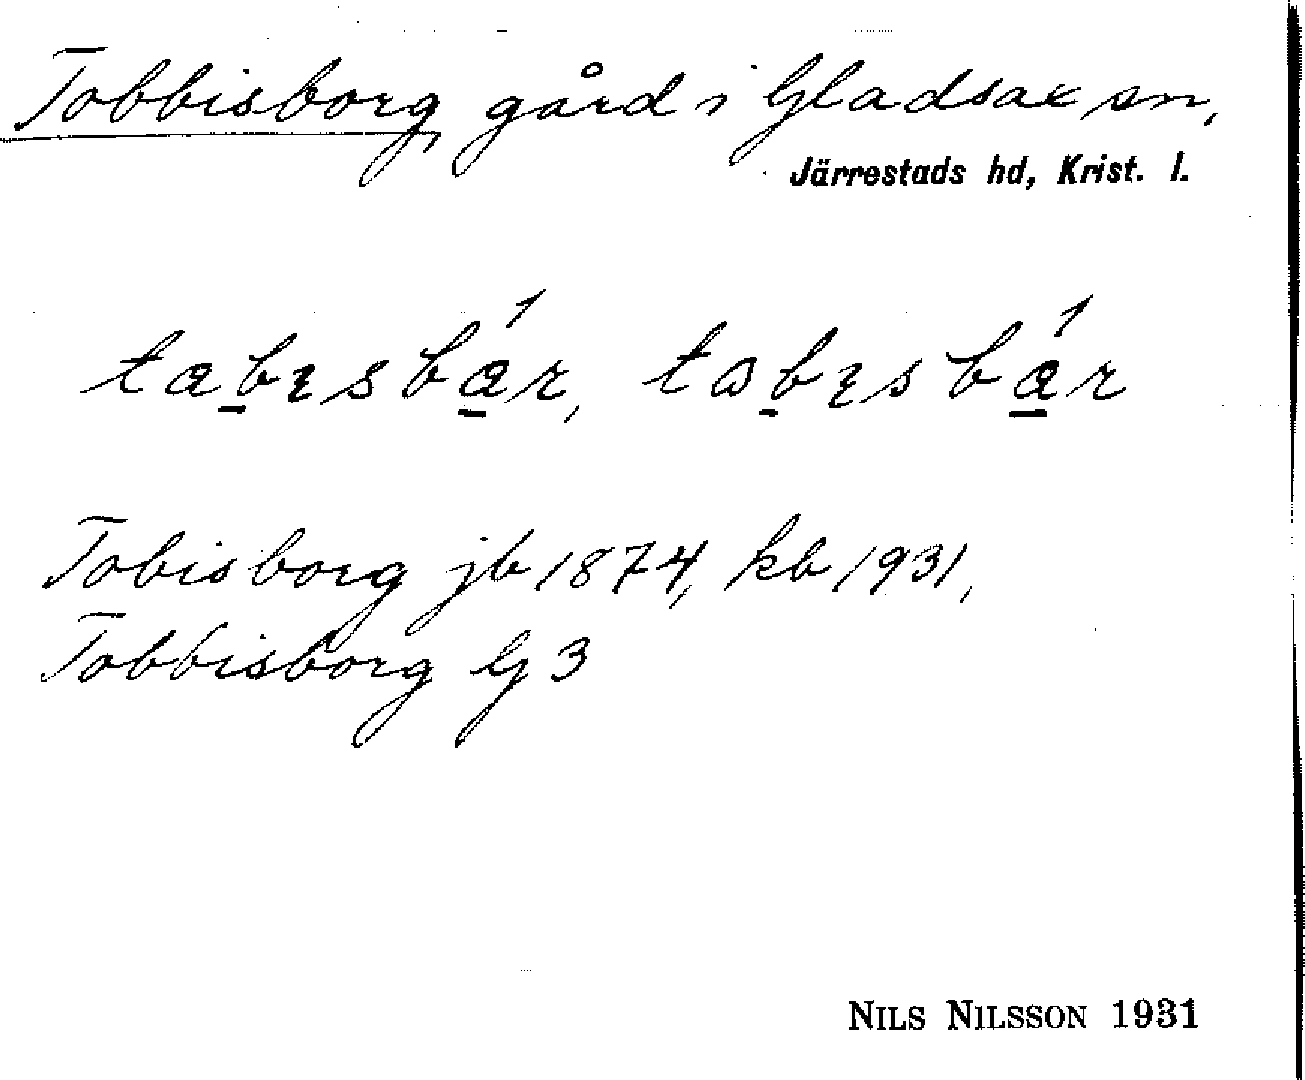 Tobbisborg, gård i Gladsax sn,
Järrestads hd, Krist. l.
tabısbár, tɷbısbár
Tobisborg jb 1874, kb 1931,
Tobbisborg G 3
NILS NILSSON 1931